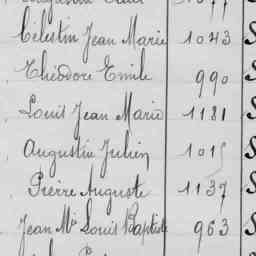 Célestin Jean Marie 1043 S
Théodore Emile 990 S
Louis Jean Marie 1181 S
Augustin Julien 1015 S
Pierre Auguste 1137 S
Jean Mie Louis Baptiste 963 S